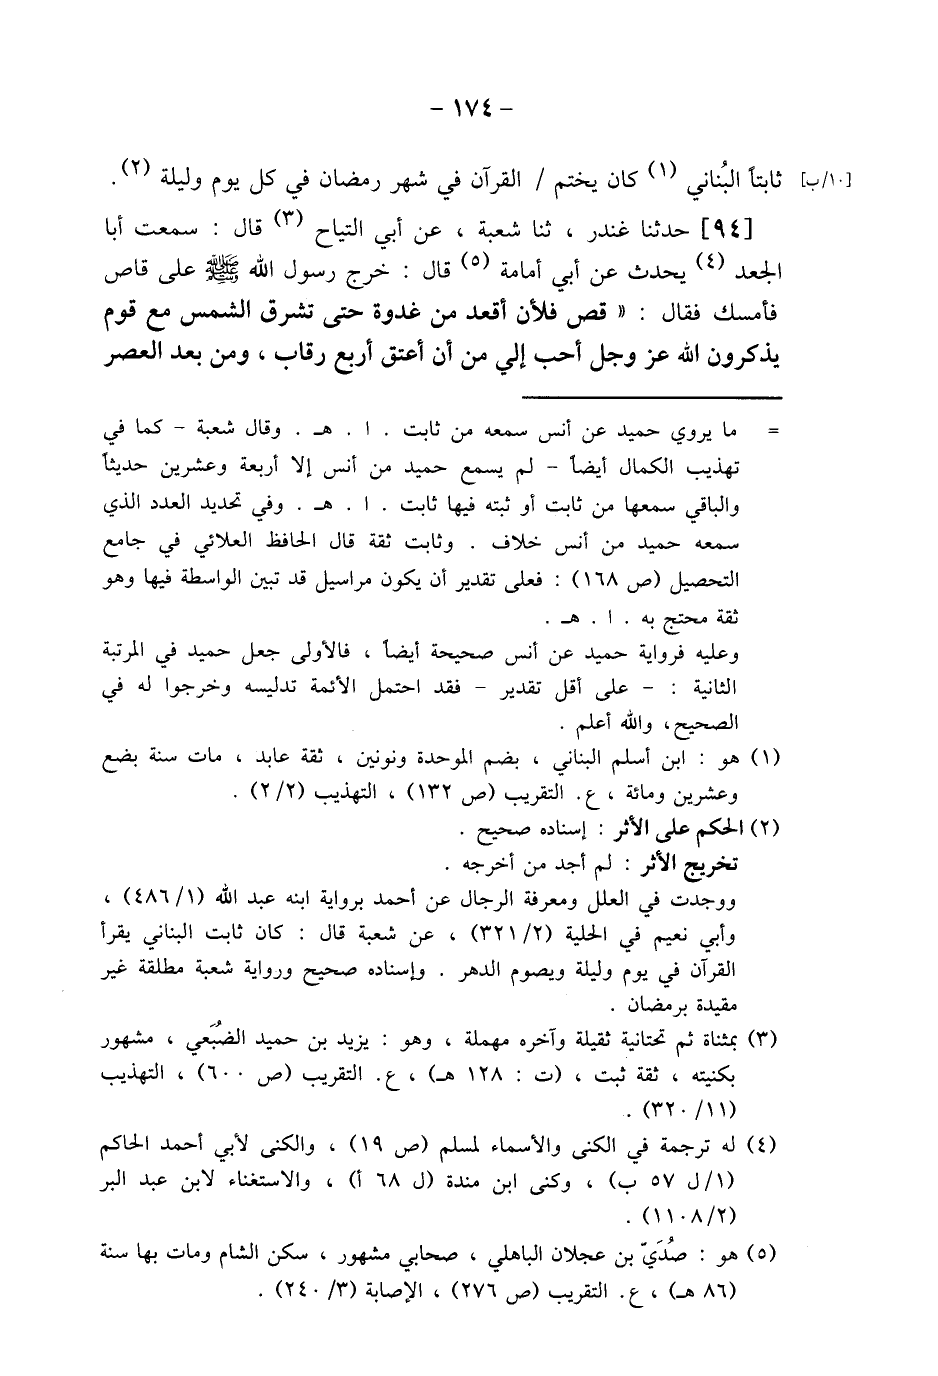 - ١٧٤ -
[١٠/ب] ثابتاً البُناني (١) كان يختم / القرآن في شهر رمضان في كل يوم وليلة (٢) .
[٩٤] حدثنا غندر ، ثنا شعبة ، عن أبي التياح (٣) قال : سمعت أبا
الجعد (٤) يحدث عن أبي أمامة (٥) قال : خرج رسول الله ﷺ على قاص
فأمسك فقال : « قص فلأن أقعد من غدوة حتى تشرق الشمس مع قوم
يذكرون الله عز وجل أحب إلي من أن أعتق أربع رقاب ، ومن بعد العصر
= ما يروي حميد عن أنس سمعه من ثابت . ا . هـ . وقال شعبة - كما في
تهذيب الكمال أيضاً - لم يسمع حميد من أنس إلا أربعة وعشرين حديثاً
والباقي سمعها من ثابت أو ثبته فيها ثابت . ا . هـ . وفي تحديد العدد الذي
سمعه حميد من أنس خلاف . وثابت ثقة قال الحافظ العلائي في جامع
التحصيل (ص ١٦٨) : فعلى تقدير أن يكون مراسيل قد تبين الواسطة فيها وهو
ثقة محتج به . ا . هـ .
وعليه فرواية حميد عن أنس صحيحة أيضاً ، فالأولى جعل حميد في المرتبة
الثانية : - على أقل تقدير - فقد احتمل الأئمة تدليسه وخرجوا له في
الصحيح، والله أعلم .
(١) هو : ابن أسلم البناني ، بضم الموحدة ونونين ، ثقة عابد ، مات سنة بضع
وعشرين ومائة ، ع. التقريب (ص ١٣٢) ، التهذيب (٢/٢) .
(٢) الحكم على الأثر : إسناده صحيح .
تخريج الأثر : لم أجد من أخرجه .
ووجدت في العلل ومعرفة الرجال عن أحمد برواية ابنه عبد الله (٤٨٦/١) ،
وأبي نعيم في الحلية (٣٢١/٢) ، عن شعبة قال : كان ثابت البناني يقرأ
القرآن في يوم وليلة ويصوم الدهر . وإسناده صحيح ورواية شعبة مطلقة غير
مقيدة برمضان .
(٣) بمثناة ثم تحتانية ثقيلة وآخره مهملة ، وهو : يزيد بن حميد الضُبَعي ، مشهور
بكنيته ، ثقة ثبت ، (ت : ١٢٨ هـ) ، ع. التقريب (ص ٦٠٠) ، التهذيب
(٣٢٠/١١) .
(٤) له ترجمة في الكنى والأسماء لمسلم (ص ١٩) ، والكنى لأبي أحمد الحاكم
(١/ل ٥٧ ب) ، وكنى ابن مندة (ل ٦٨ أ) ، والاستغناء لابن عبد البر
(١١٠٨/٢) .
(٥) هو : صُدَيّ بن عجلان الباهلي ، صحابي مشهور ، سكن الشام ومات بها سنة
(٨٦ هـ) ، ع. التقريب (ص ٢٧٦) ، الإصابة (٢٤٠/٣) .